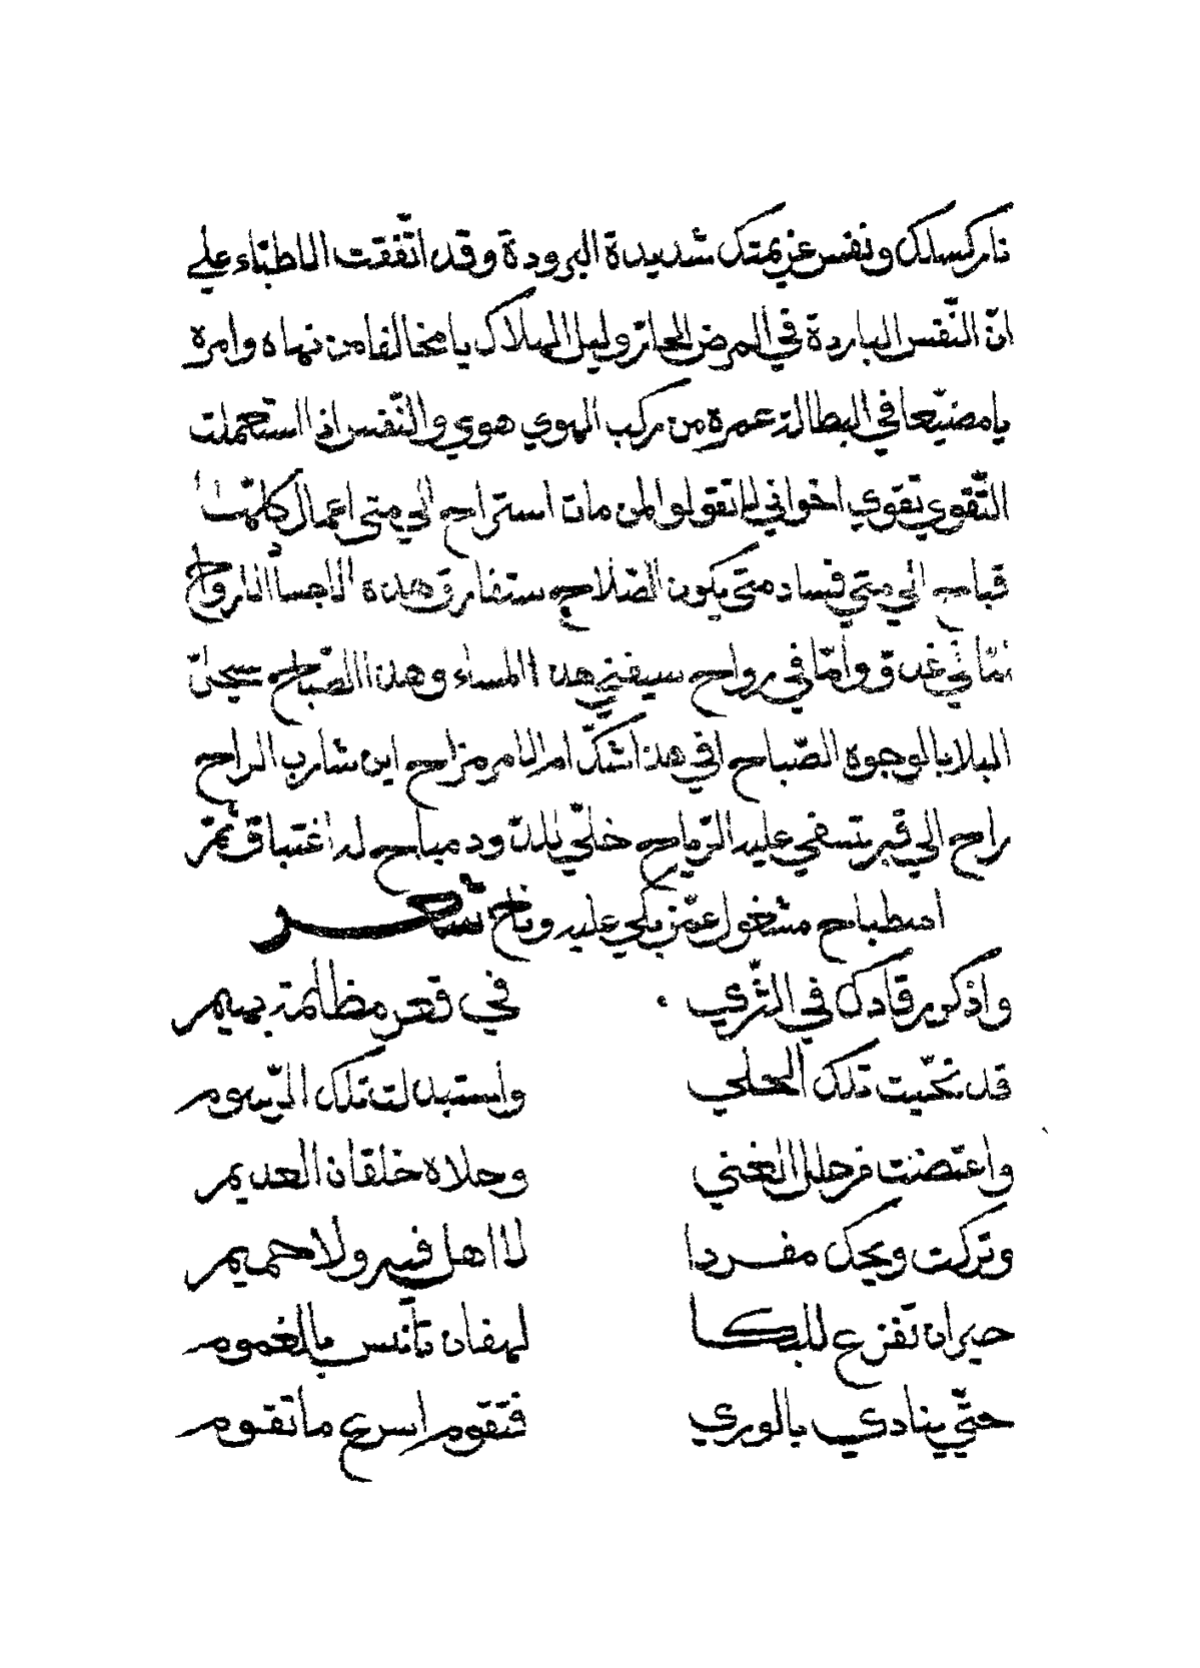 نار كسلك ونفس عزيمتك شديدة البرودة وقد اتّفقت الاطبّاء علي
انّ النّفس الباردة في المرض الحارّ دليل الهلاك يا مخالفا من نهاه وامره
يا مضيّعا في البطالة عمره من ركب الهوي هوي والنّفس اذا استعملت
التّقوي تقوي اخواني لا تقولوا لمن مات استراح الي متي اعمال كلّها
قباح الي متي فساد متي يكون الصّلاح ستفارق هذه الاجساد الارواح
امّا في غدوّ وامّا في رواح سيفني هذا المساء وهذا الصّباح سيحلّ
البلا بالوجوه الصّباح افي هذا شكّ ام الامر مزاح اين شارب الراح
راح الي قبر تسفي عليه الرّياح خلّي للدّود مباح له اغتباق ثمّ
اصطباح مشغول عمّن بكي عليه وناح شعر
واذكر رقادك في الثّري في قعر مظلمة بهيم
قد نحّيت تلك الحلي واستبدلت تلك الرّسوم
واعتضت من حلل الغني وحلاه خلقان العديم
وتركت ويحك مفردا لا اهل فيه ولا حميم
حيران تفزع للبكا لهفان تأنس بالغموم
حتّي ينادي بالوري فتقوم اسرع ما تقوم